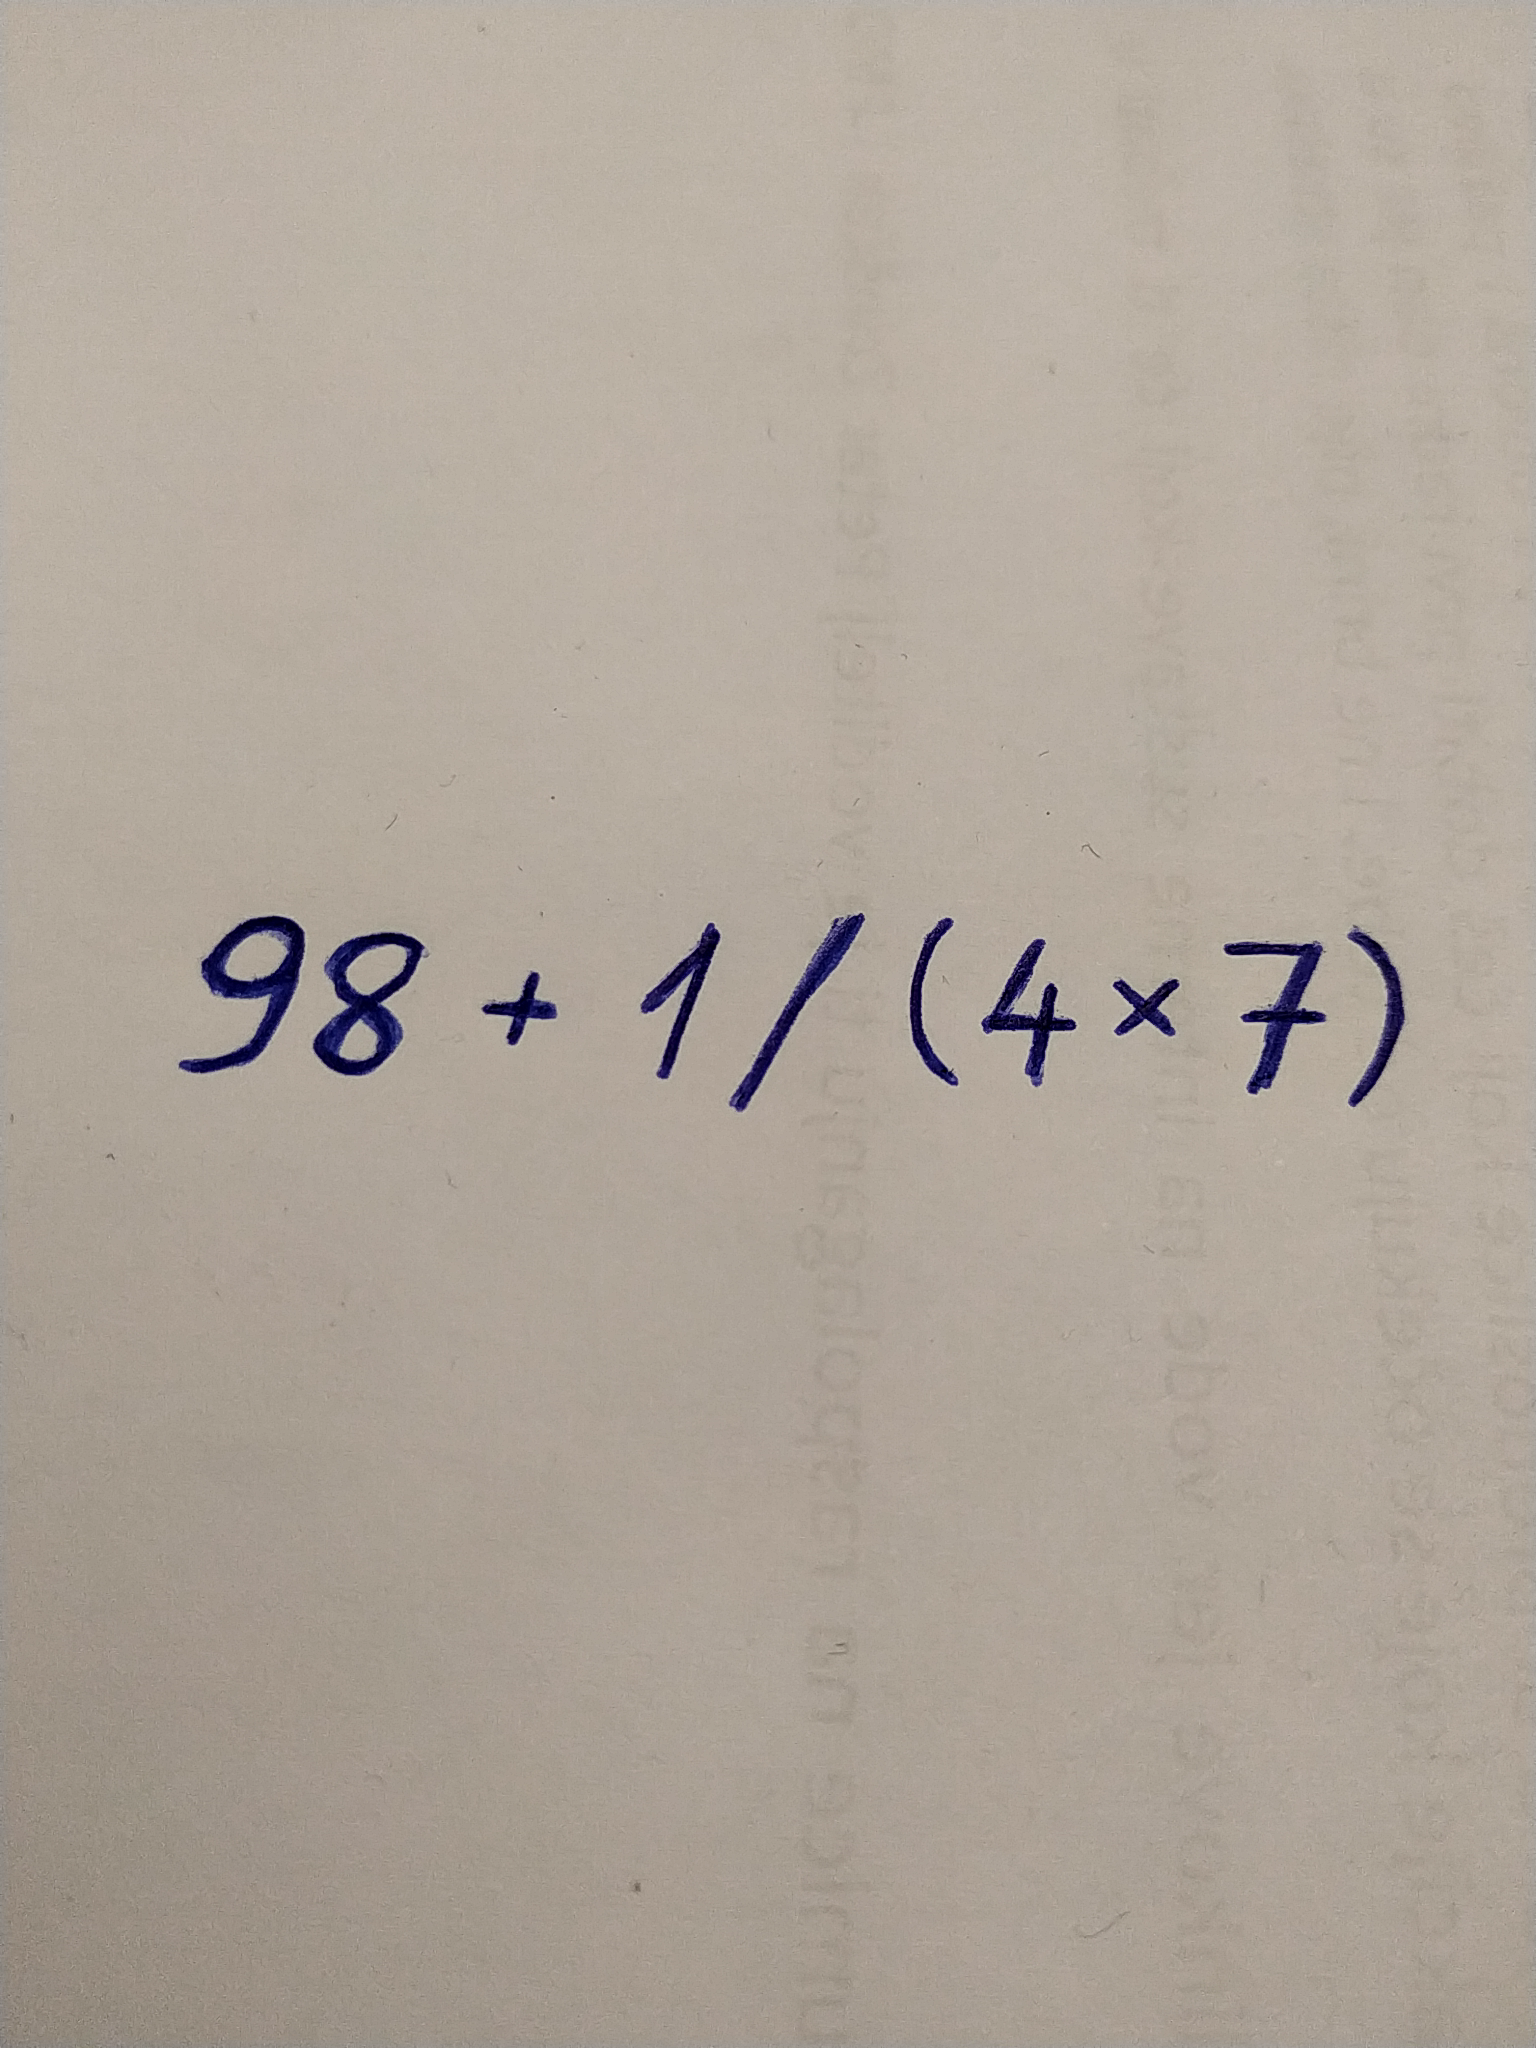 98 + 1 / (4 × 7)